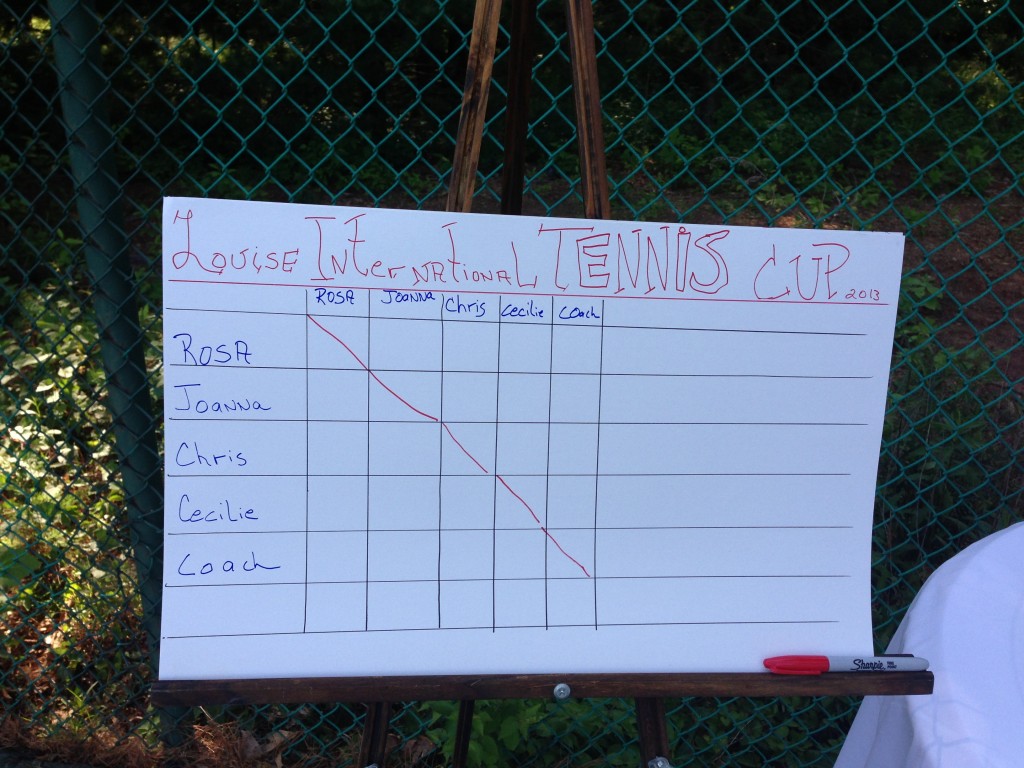 Louise InternationaL TENNIS CUP 2013
ROSA Joanna Chris Cecilie Coach
ROSA
Joanna
Chris
Cecilie
Coach
Sharpie